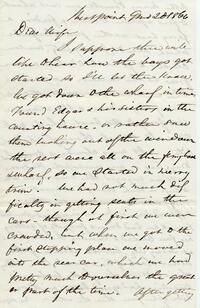 Dear Wife
I suppose you will
like to hear how the boys got
started so I'll let you know.
We got down to the wharf in time
found Edgar & his sister, in the
counting house - or rather saw
them looking out of the window
the rest were all on the
wharf, so we started in merry
trim! We had not much dif-
ficulty in getting seats in the
cars - though at first we were
crowded, but when we got to the
first stopping place we moved
into the rear car, which we had
pretty much to ourselves the great-
er part of the time. After getting